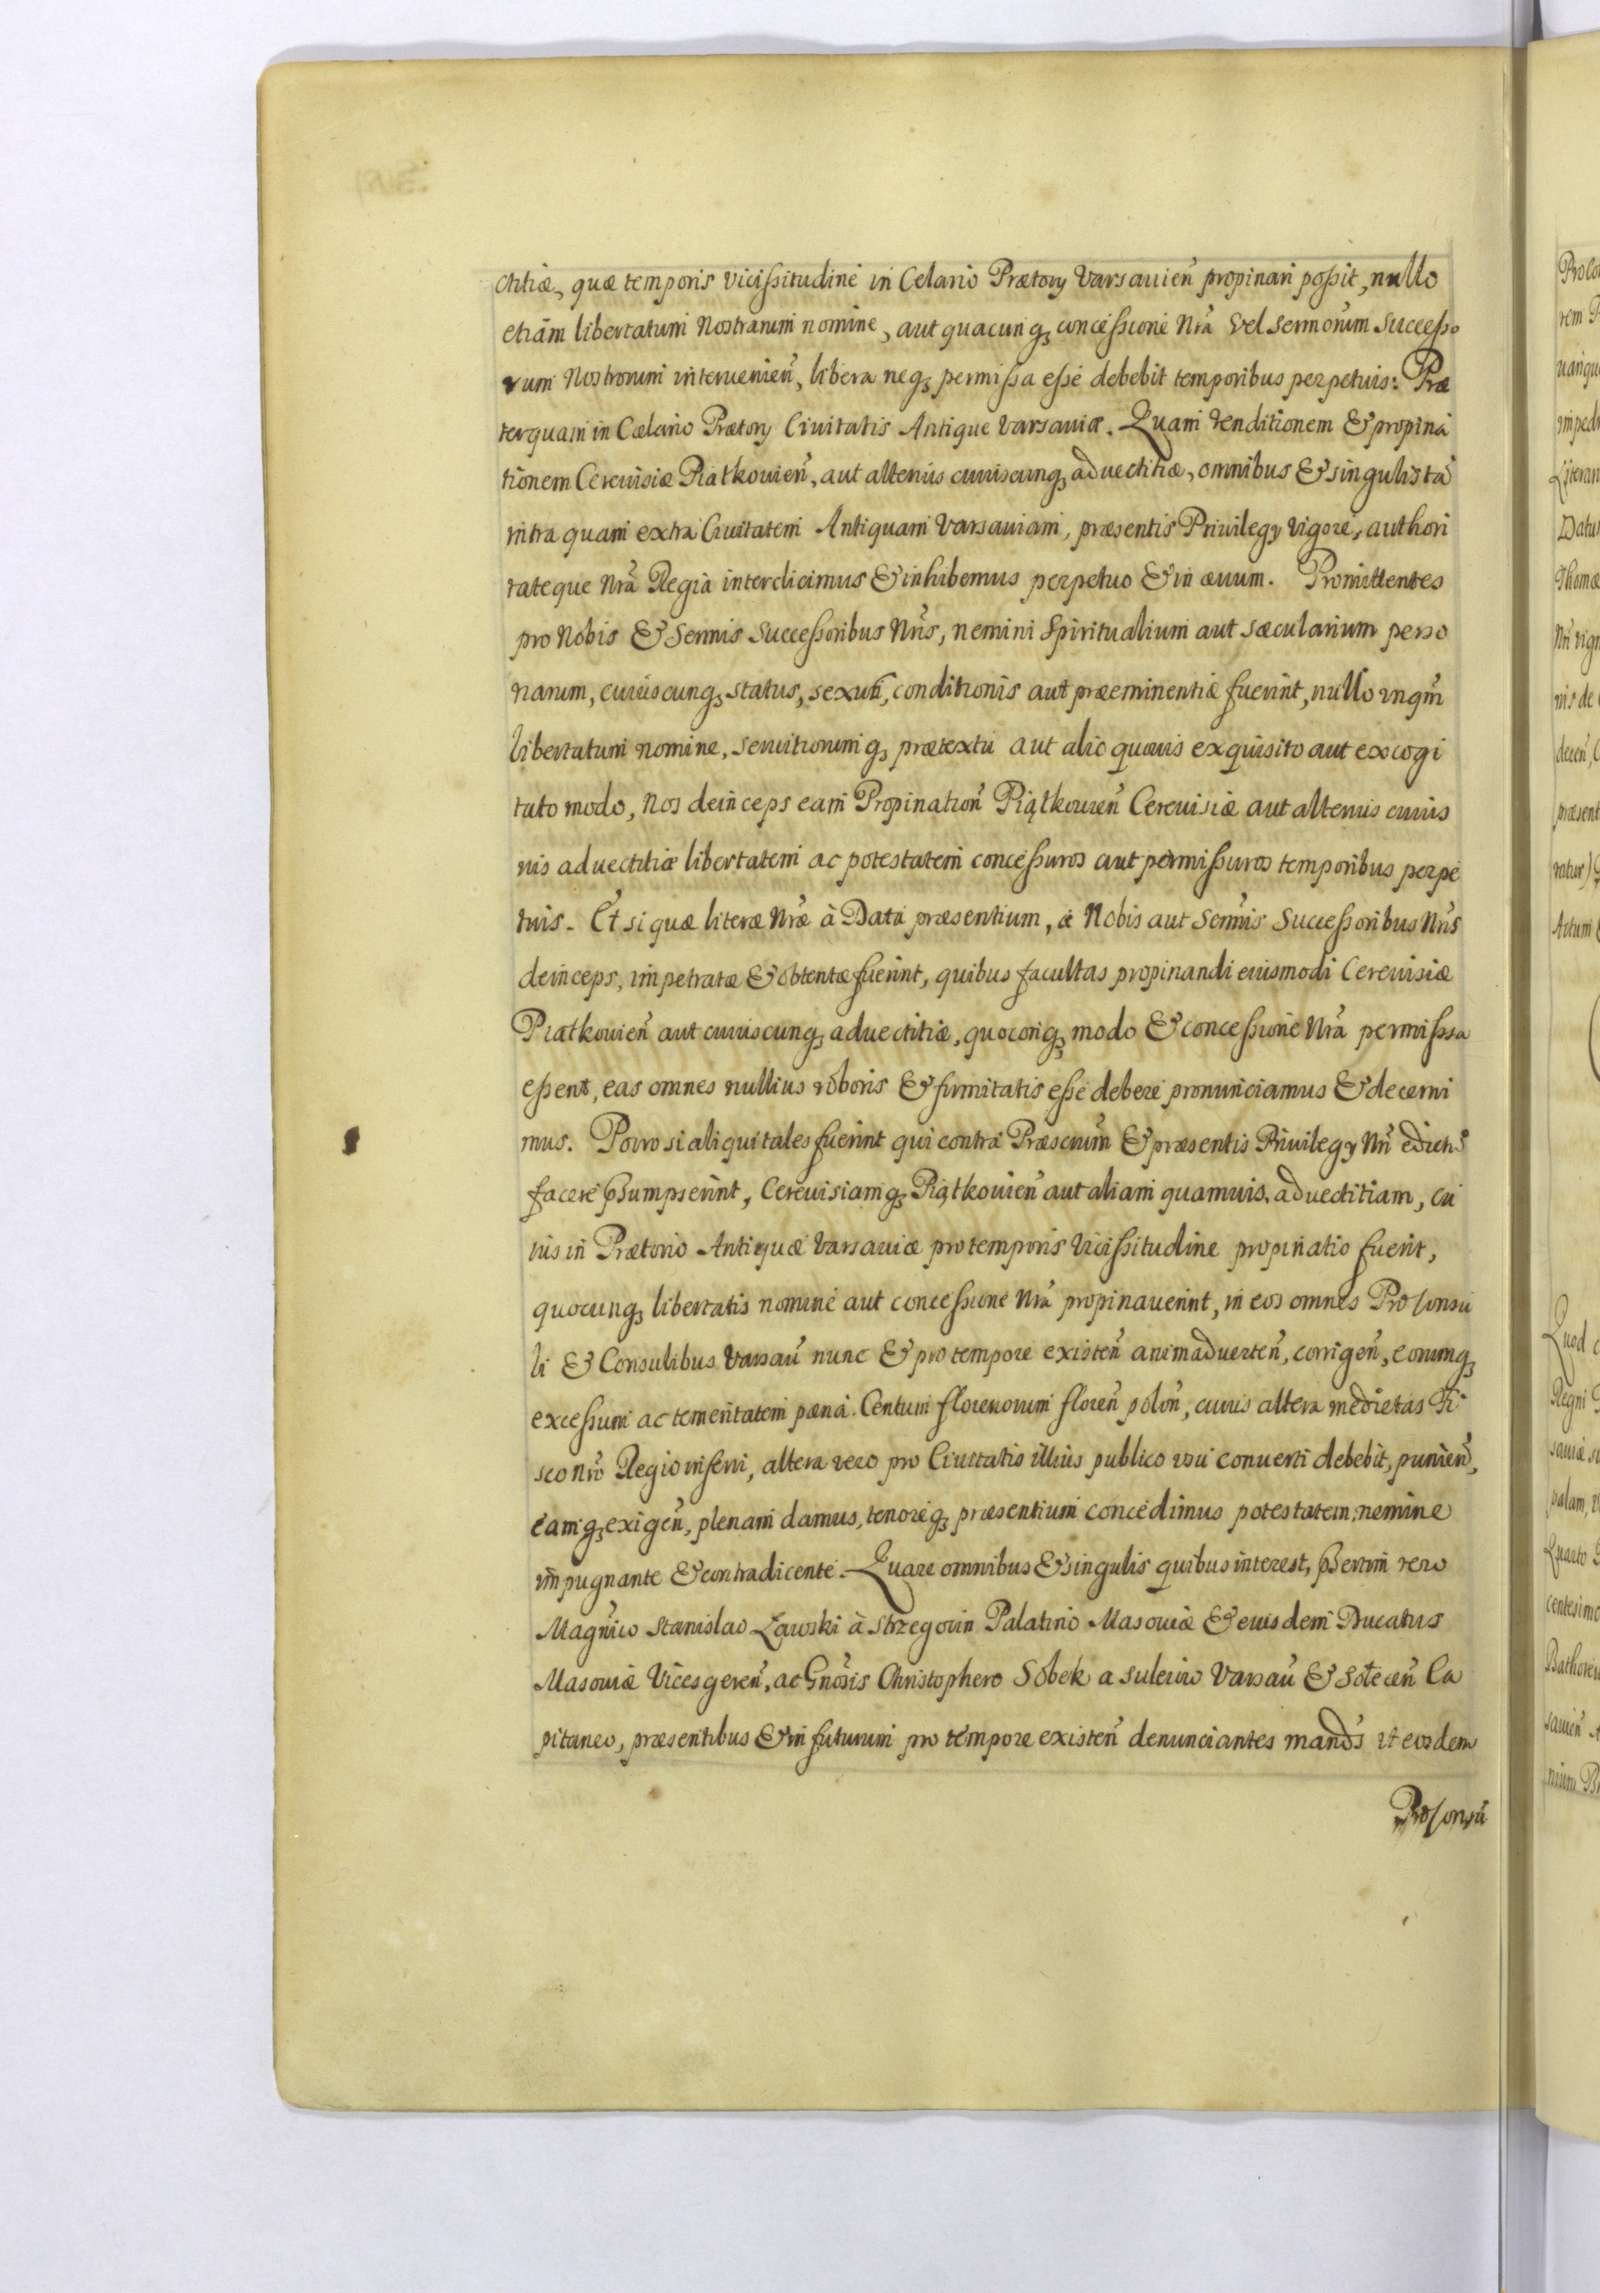 ctitiæ, quæ temporis vicissitudine in Celario Prætory Varsauien̄ propinari possit, nullo
etiam libertatum Nostrarum nomine, aut quacunq₃ concessione Nr̄a vel Serm̄orum Successo
rum Nostrorum interuenien̄, libera neq₃ permissa esse debebit temporibus perpetuis. Præ
terquam in Cælario Prætory Ciuitatis Antique Varsauiæ. Quam venditionem & propina
tionem Cereuisiæ Piatkouien̄, aut alterius cuiuscunq₃ aduectitiæ, omnibus & singulis tā
intra quam extra Ciuitatem Antiquam Varsauiam, præsentis Priuilegy vigore, authori
tateque Nr̄a Regia interdicimus & inhibemus perpetuo & in æuum. Promittentes
pro Nobis & Sermis Successoribus Nr̄is, nemini Spiritualium aut sæcularium perso
narum, cuiuscunq₃ status, sexus, conditionis aut præeminentiæ fuerint, nullo vnq̄m
libertatum nomine, seruitiorumq₃ prætextu aut alio quouis exquisito aut excogi
tato modo, Nos deinceps eam Propination̄ Piątkouien̄ Cereuisiæ aut alterius cuius
uis aduectitiæ libertatem ac potestatem concessuros aut permissuros temporibus perpe
tuis. Et si quæ literæ Nr̄æ à Data præsentium, à Nobis aut Serm̄is Successoribus Nr̄is
deinceps, impetratæ & obtentæ fuerint, quibus facultas propinandi eiusmodi Cereuisiæ
Piatkouien̄ aut cuiuscunq₃ aduectitiæ, quocunq₃ modo & concessione Nr̄a permissa
essent, eas omnes nullius roboris & firmitatis esse debere pronunciamus & decerni
mus. Porro si aliqui tales fuerint qui contra Præscriūm & præsentis Priuilegy Nr̄i edictū
facere p̄sumpserint, Cereuisiamq₃ Piątkouien̄ aut aliam quamuis aduectitiam, cu
ius in Prætorio Antiquæ Varsauiæ pro temporis vicissitudine propinatio fuerit,
quocunq₃ libertatis nomine aut concessione Nr̄a propinauerint, in eos omnes ProConsu
li & Consulibus Varsau̅ nunc & pro tempore existen̄ animaduerten̄, corrigen̄, eorumq₃
excessum ac temeritatem pæna Centum florenorum floren̄ polon̄, cuius altera medietas Fi
sco Nr̄o Regio inferri, altera vero pro Ciuitatis illius publico vsu conuerti debebit, punien̄,
eamq₃ exigen̄, plenam damus, tenoreq₃ præsentium concedimus potestatem, nemine
impugnante & contradicente. Quare omnibus & singulis quibus interest, p̄sertim vero
Magn̄ico Stanislao Ławski à Strzegocin Palatino Masouiæ & eiusdem Ducatus
Masouiæ Vicesgeren̄, ac Gn̄osis Christophero Sobek a Suleiow Varsau̅ & Sotecen̄ Ca
pitaneo, præsentibus & in futurum pro tempore existen̄ denunciantes mand̄s vt eosdem
ProConsu